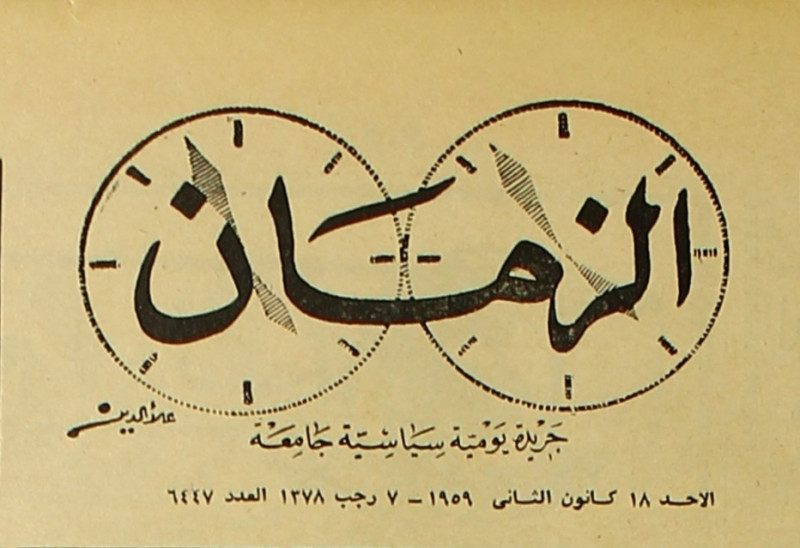 الزمان
علاءالدين
جَرْيَدة يَوْمَية سِيَاسِيَّة جَامِعَة
الاحد ١٨ كانون الثانى ١٩٥٩ – ٧ رجب ١٣٧٨ العدد ٦٤٤٧